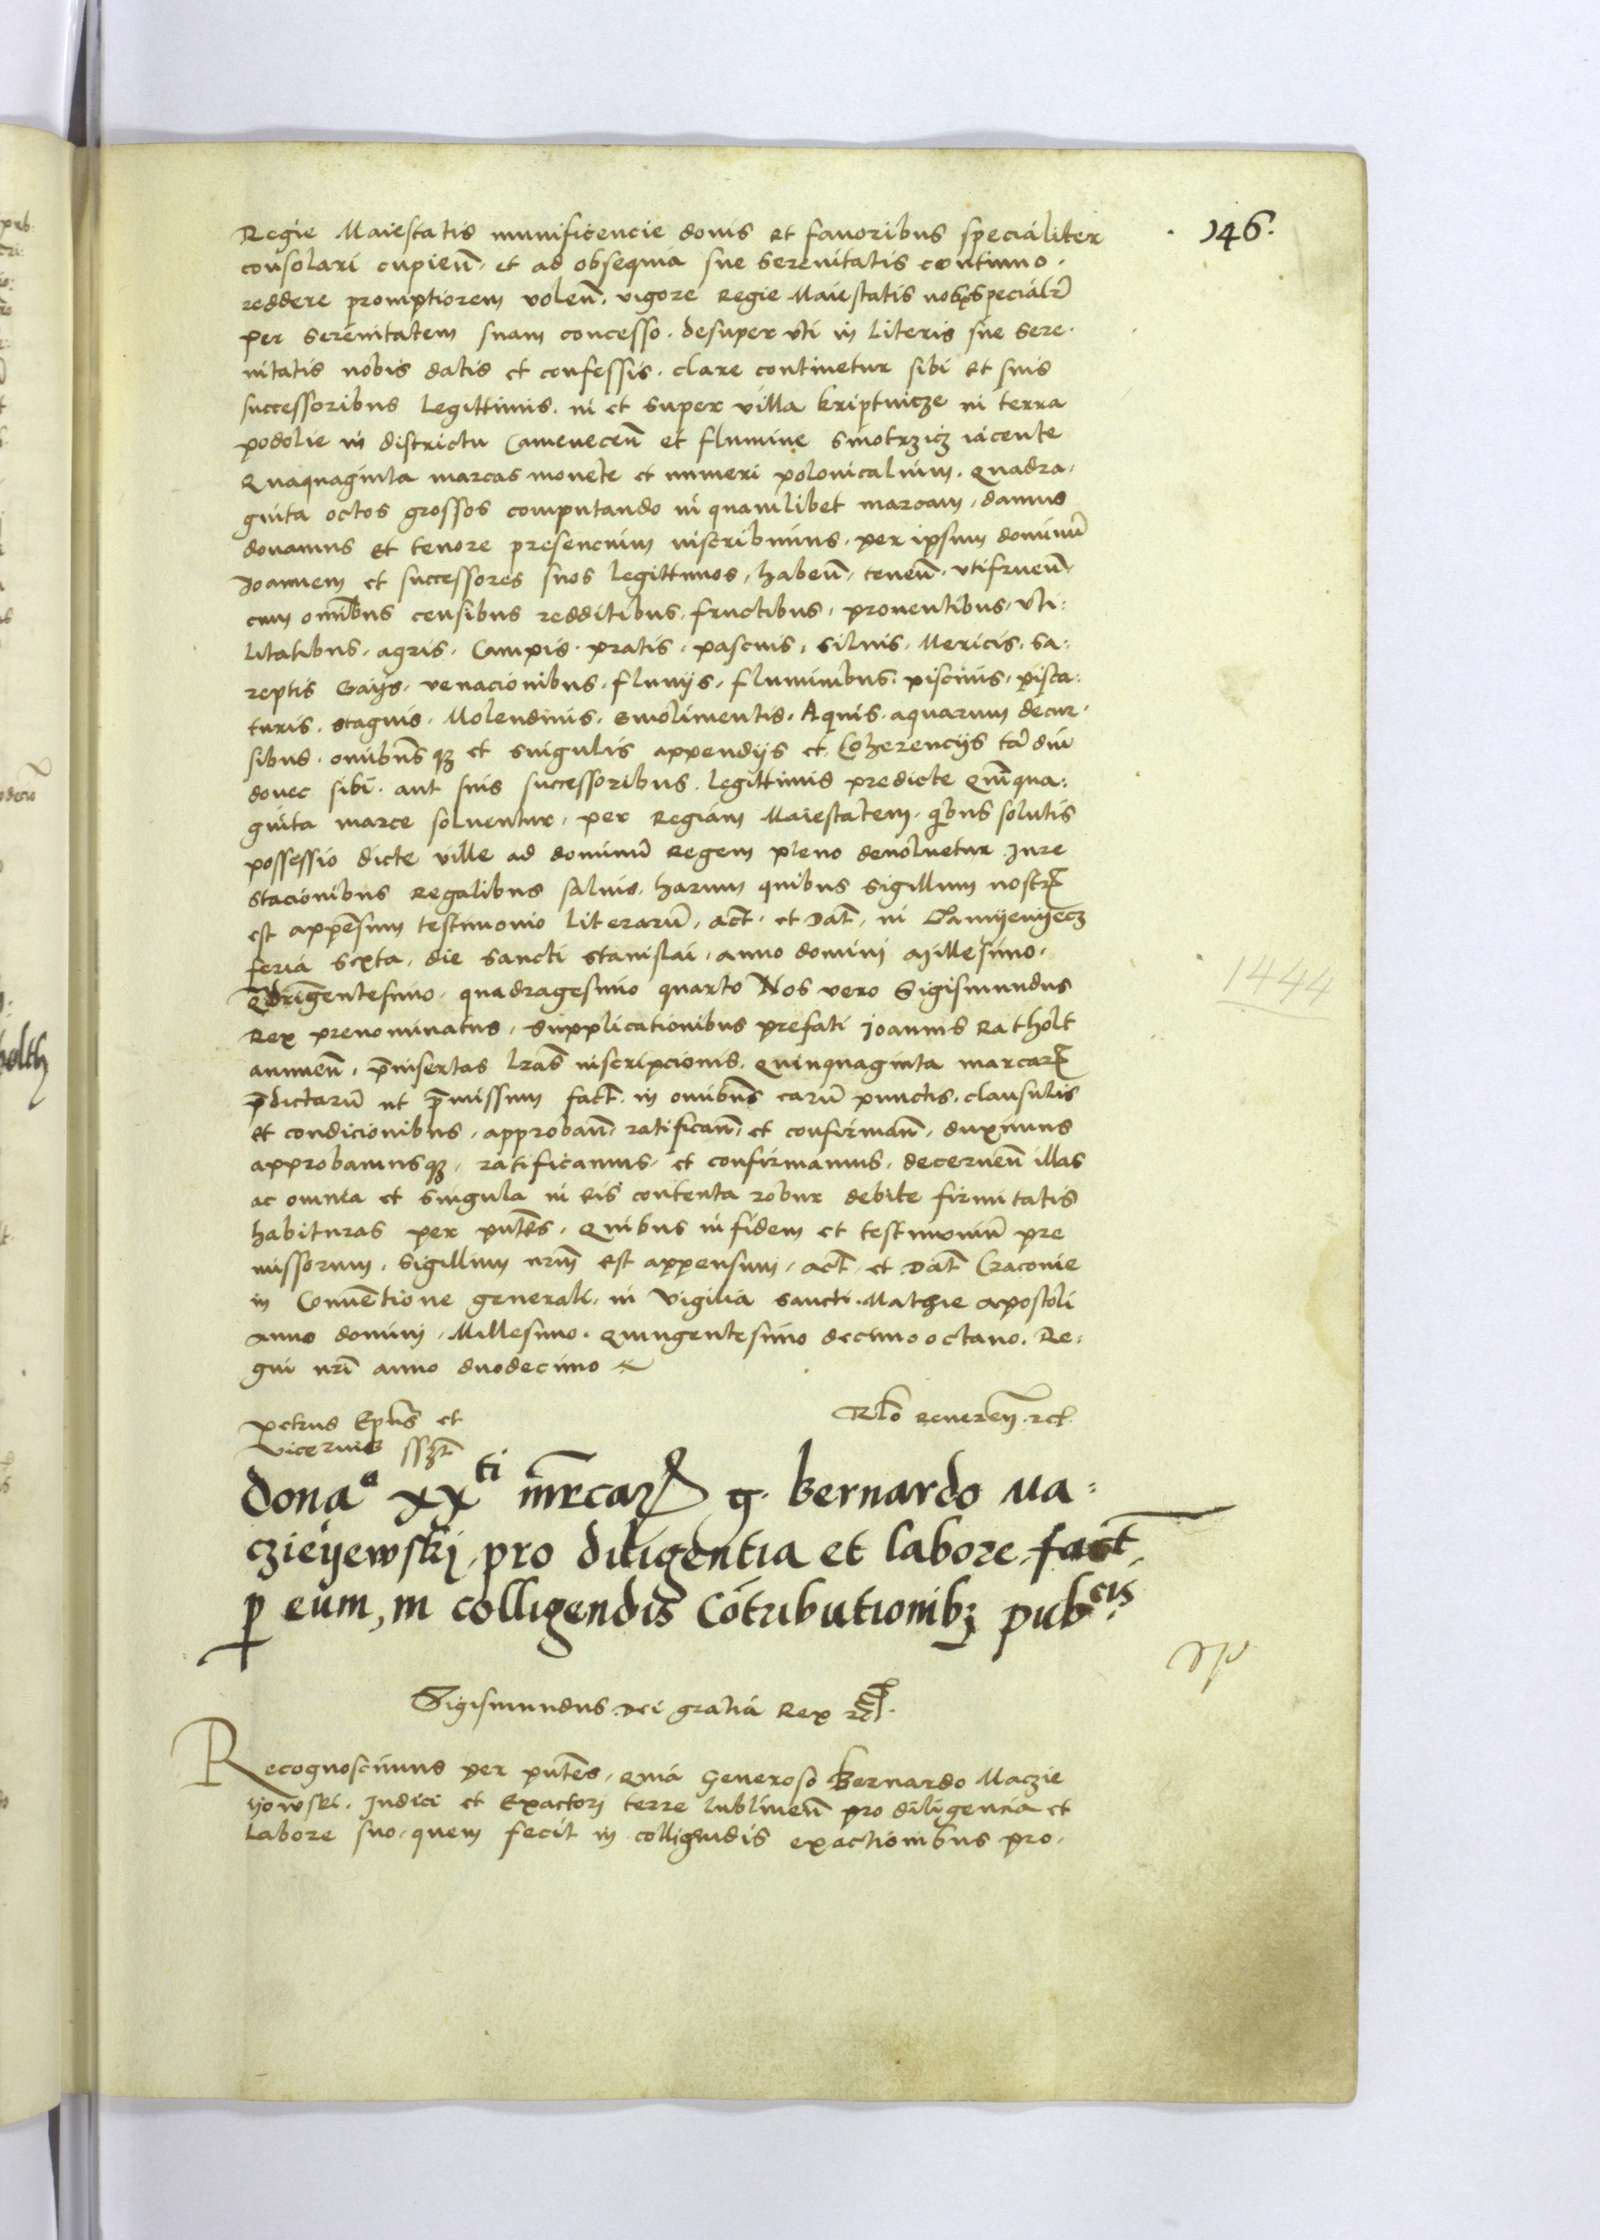 146.
Regie Maiestatis munificencie donis et fauoribus specialiter
consolari cupieñ. et ad obsequia sue serenitatis continuo.
reddere promptiorem voleñ. vigore Regie Maiestatis nobis specialr̃
per serenitatem suam concesso. desuper vti in literis sue sere.
nitatis nobis datis et confessis. clare continetur sibi et suis
successoribus legittimis. in et super villa kriptwicze in terra
podolie in districtu Cameneceñ et flumine Smotrzicz iacente
Quaquaginta marcas monete et numeri polonicalium. Quadra.
ginta octos grossos computando in quamlibet marcam. damus
donamus et tenore presencium inscribimus. per ipsum dominũ
Joannem et successores suos legittimos. habeñ. teneñ. vtifrueñ.
cum om̃ibus censibus redditibus. fructibus. prouentibus. vti:
litatibus. agris. Campis. pratis. pascuis. siluis. Mericis. Sa:
reptis Gaijs. venacionibus. fluuijs. fluminibus. piscinis. pisca:
turis. stagnis. Molendinis. emolimentis. Aquis. aquarum decur.
sibus. omibusqȝ et singulis appendijs et Coherencijs tã diu
donec sibi. aut suis successoribus. legittimis predicte Quĩqua:
ginta marce soluentur. per Regiam Maiestatem. qibus solutis
possessio dicte ville ad dominũ Regem pleno deuoluetur Jure
stacionibus Regalibus saluis. harum quibus sigillum nostrꝝ
est appẽsum testimonio literarũ. act̃. et dat̃. in Camyenyecz
feria sexta. die sancti Stanislai. anno domini Millesimo.
Qdringentesimo. quadragesimo quarto Nos vero Sigismundus
Rex prenominatus. supplicationibus prefati Joannis Ratholt
annueñ. p̃insertas lr̃as inscripcionis. Quinquaginta marcarꝝ
p̃dictarũ ut p̃missum fact̃. in omibus earũ punctis. clausulis
et condicionibus. approbañ. ratificañ. et confirmañ. duximus
approbamusqȝ. ratificamus. et confirmamus. decerneñ illas
ac omnia et singula in eis contenta robur debite firmitatis
habituras per pñtes. Quibus in fidem et testimoniũ pre
missorum. Sigillum nr̃m est appensum. act̃. et dat̃ Cracouie
in Conuẽtione generali. in vigilia sancti. Mathie apostoli
anno domini. Millesimo. Quingentesimo decimo octauo. Re:
gni nr̃i anno duodecimo
Petrus Epũs et
Vicecanc̃ sszt
Rlõ Reuereñ. rct.
1444
Donaᵃ xxᵗⁱ mr̃carꝝ g. Bernardo Ma:
czieyewskj, pro diligentia et labore fact̃
ꝑ eum, in colligendis Cõtributionibꝫ pubᶜⁱˢ.
Sigismundus Dei gratia Rex rc̃.
Recognoscimus per pñtes. quia Generoso Bernardo Maczie
yowski. Judici et Exactorj terre lublineñ pro diligencia et
labore suo. quem fecit in colligendis exactionibus pro.